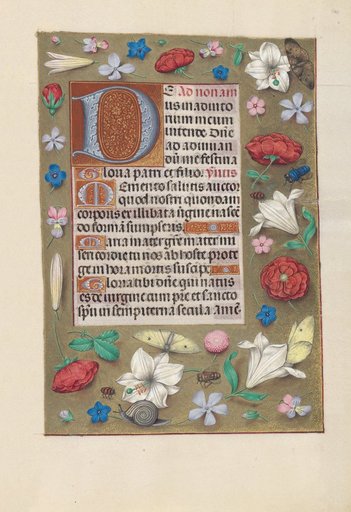 D Ad nonam
us in adiuto
rium meum
intende Dñe
ad adiuuan
dū me festina
Gloria patri et filio. ymnus
Memento salutis auctor
quod nostri quondam
corporis ex illibata uirgine nascē
do formā sumpseris
Maria mater grē mater mīe
sericordie tu nos ab hoste prote
ge in hora mortis suscipe
Gloria tibi dñe qui natus
es de uirgine cum pře et sancto
spū in sempiterna secula amē